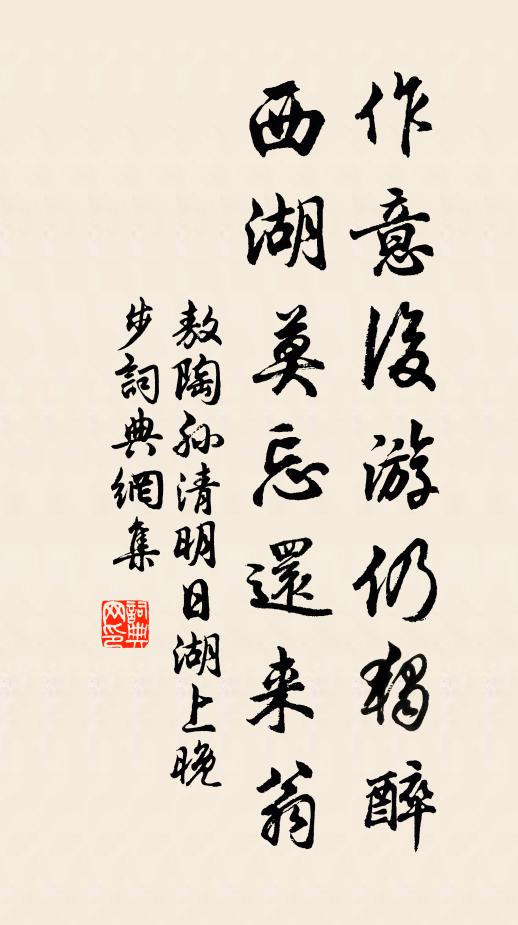 作意後游仍獨醉
西湖莫忘還来翁
敖陶孫清明日湖上晚
步詞典網集
詞典
网印